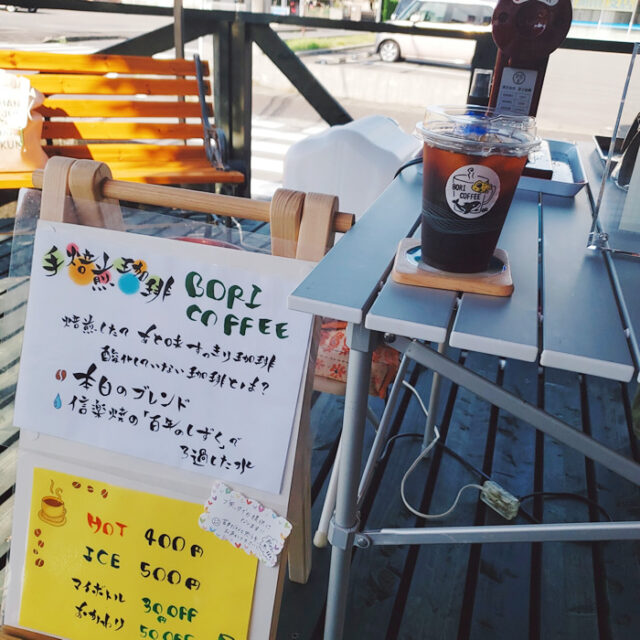 手焙煎珈琲 BORI COFFEE
焙煎したの すっきり珈琲
酸化していない珈琲とは?
本日のブレンド
信楽焼の「百年のしずく」が
ろ過した水
HOT 400円
ICE 500円
マイボトル 30OFF
おかわり 50OFF
BORI COFFEE